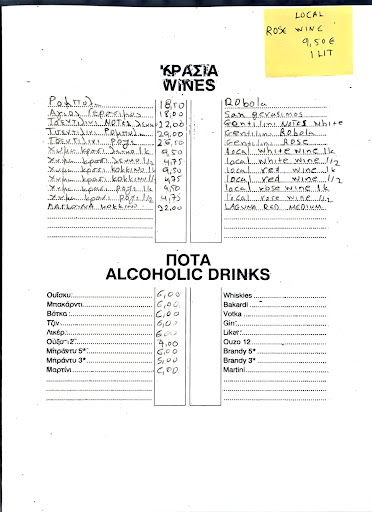 LOCAL
ROSE WINE
9,50 €
1 LIT
ΚΡΑΣΙΑ
WINES
Ρομπολα 18,50 Robola
Αγιος Γερασιμος 18,00 San gerasimos
Τζεντιλινι NOTES 22,00 Gentilini NOTES White
Τζεντιλινι Ρομπολα 29,00 Gentilini Robola
Τζεντιλινι Ροζε Gentilini ROSE
Χυμα κρασι 1k 9,50 local white wine 1k
Χυμα κρασι 1/2 4,75 local white wine 1/2
Χυμα κρασι κοκκινο 1k 9,50 local red wine 1k
Χυμα κρασι κοκκινο 1/2 4,75 local red wine 1/2
Χυμα κρασι ροζε 1k 9,50 local rose wine 1k
Χυμα κρασι ροζε 1/2 4,75 local rose wine 1/2
κοκκινο 22,00 LAGUNA RED MEDIUM
ΠΟΤΑ
ALCOHOLIC DRINKS
Ουΐσκυ 6,00 Whiskies
Μπακάρντι 6,00 Bakardi
Βότκα 6,00 Votka
Τζιν 6,00 Gin
Λικέρ 6,00 Liker
Ούζο 12 4,00 Ouzo 12
Μπράντυ 5* 6,00 Brandy 5*
Μπράντυ 3* 5,00 Brandy 3*
Μαρτίνι 6,00 Martini